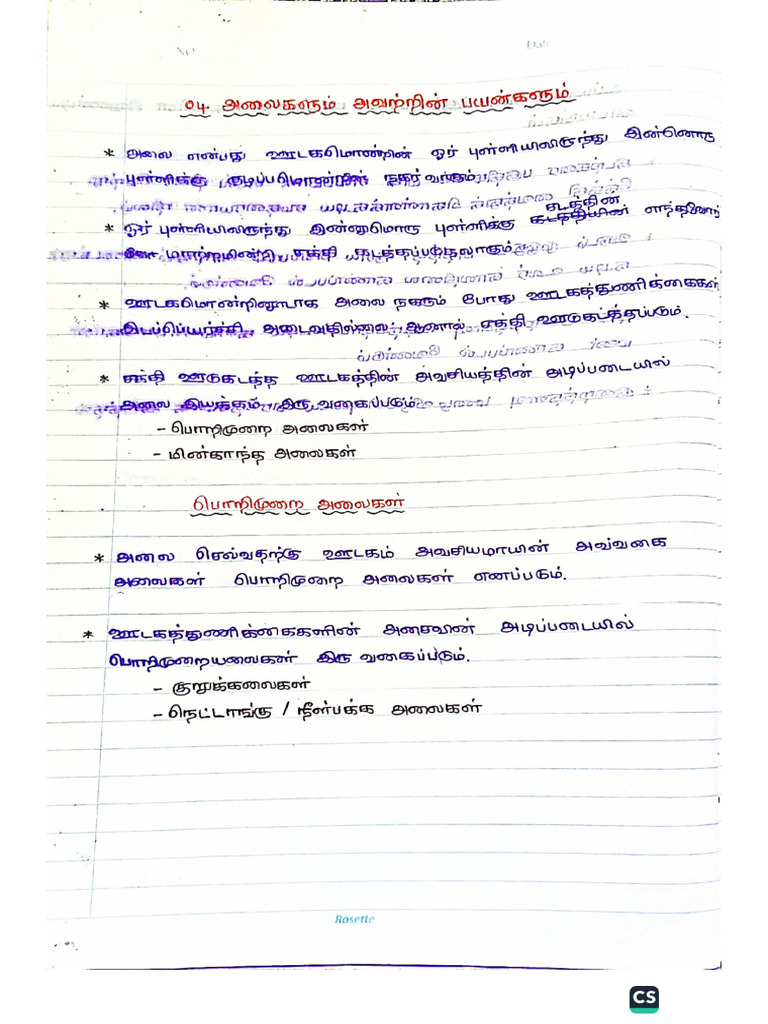 No
Date
04. அலைகளும் அவற்றின் பயன்களும்
* அலை என்பது ஊடகமொன்றின் ஓர் புள்ளியிலிருந்து இன்னொரு
புள்ளிக்கு குழப்பமொன்றின் நகர்வாகும்
* ஓர் புள்ளியிலிருந்து இன்னுமொரு புள்ளிக்கு
மாற்றமின்றி சக்தி கடத்தப்படுதலாகும்
* ஊடகமொன்றினூடாக அலை நகரும் போது ஊடகத்துணிக்கைகள்
இடப்பெயர்ச்சி அடைவதில்லை ஆனால் சக்தி ஊடுகடத்தப்படும்.
* சக்தி ஊடுகடத்த ஊடகத்தின் அவசியத்தின் அடிப்படையில்
அலை இயக்கம் இரு வகைப்படும்
- பொறிமுறை அலைகள்
- மின்காந்த அலைகள்
பொறிமுறை அலைகள்
* அலை செல்வதற்கு ஊடகம் அவசியமாயின் அவ்வகை
அலைகள் பொறிமுறை அலைகள் எனப்படும்.
* ஊடகத்துணிக்கைகளின் அசைவின் அடிப்படையில்
பொறிமுறையலைகள் இரு வகைப்படும்.
- குறுக்கலைகள்
- நெட்டாங்கு / நீள்பக்க அலைகள்
Rosette
CS